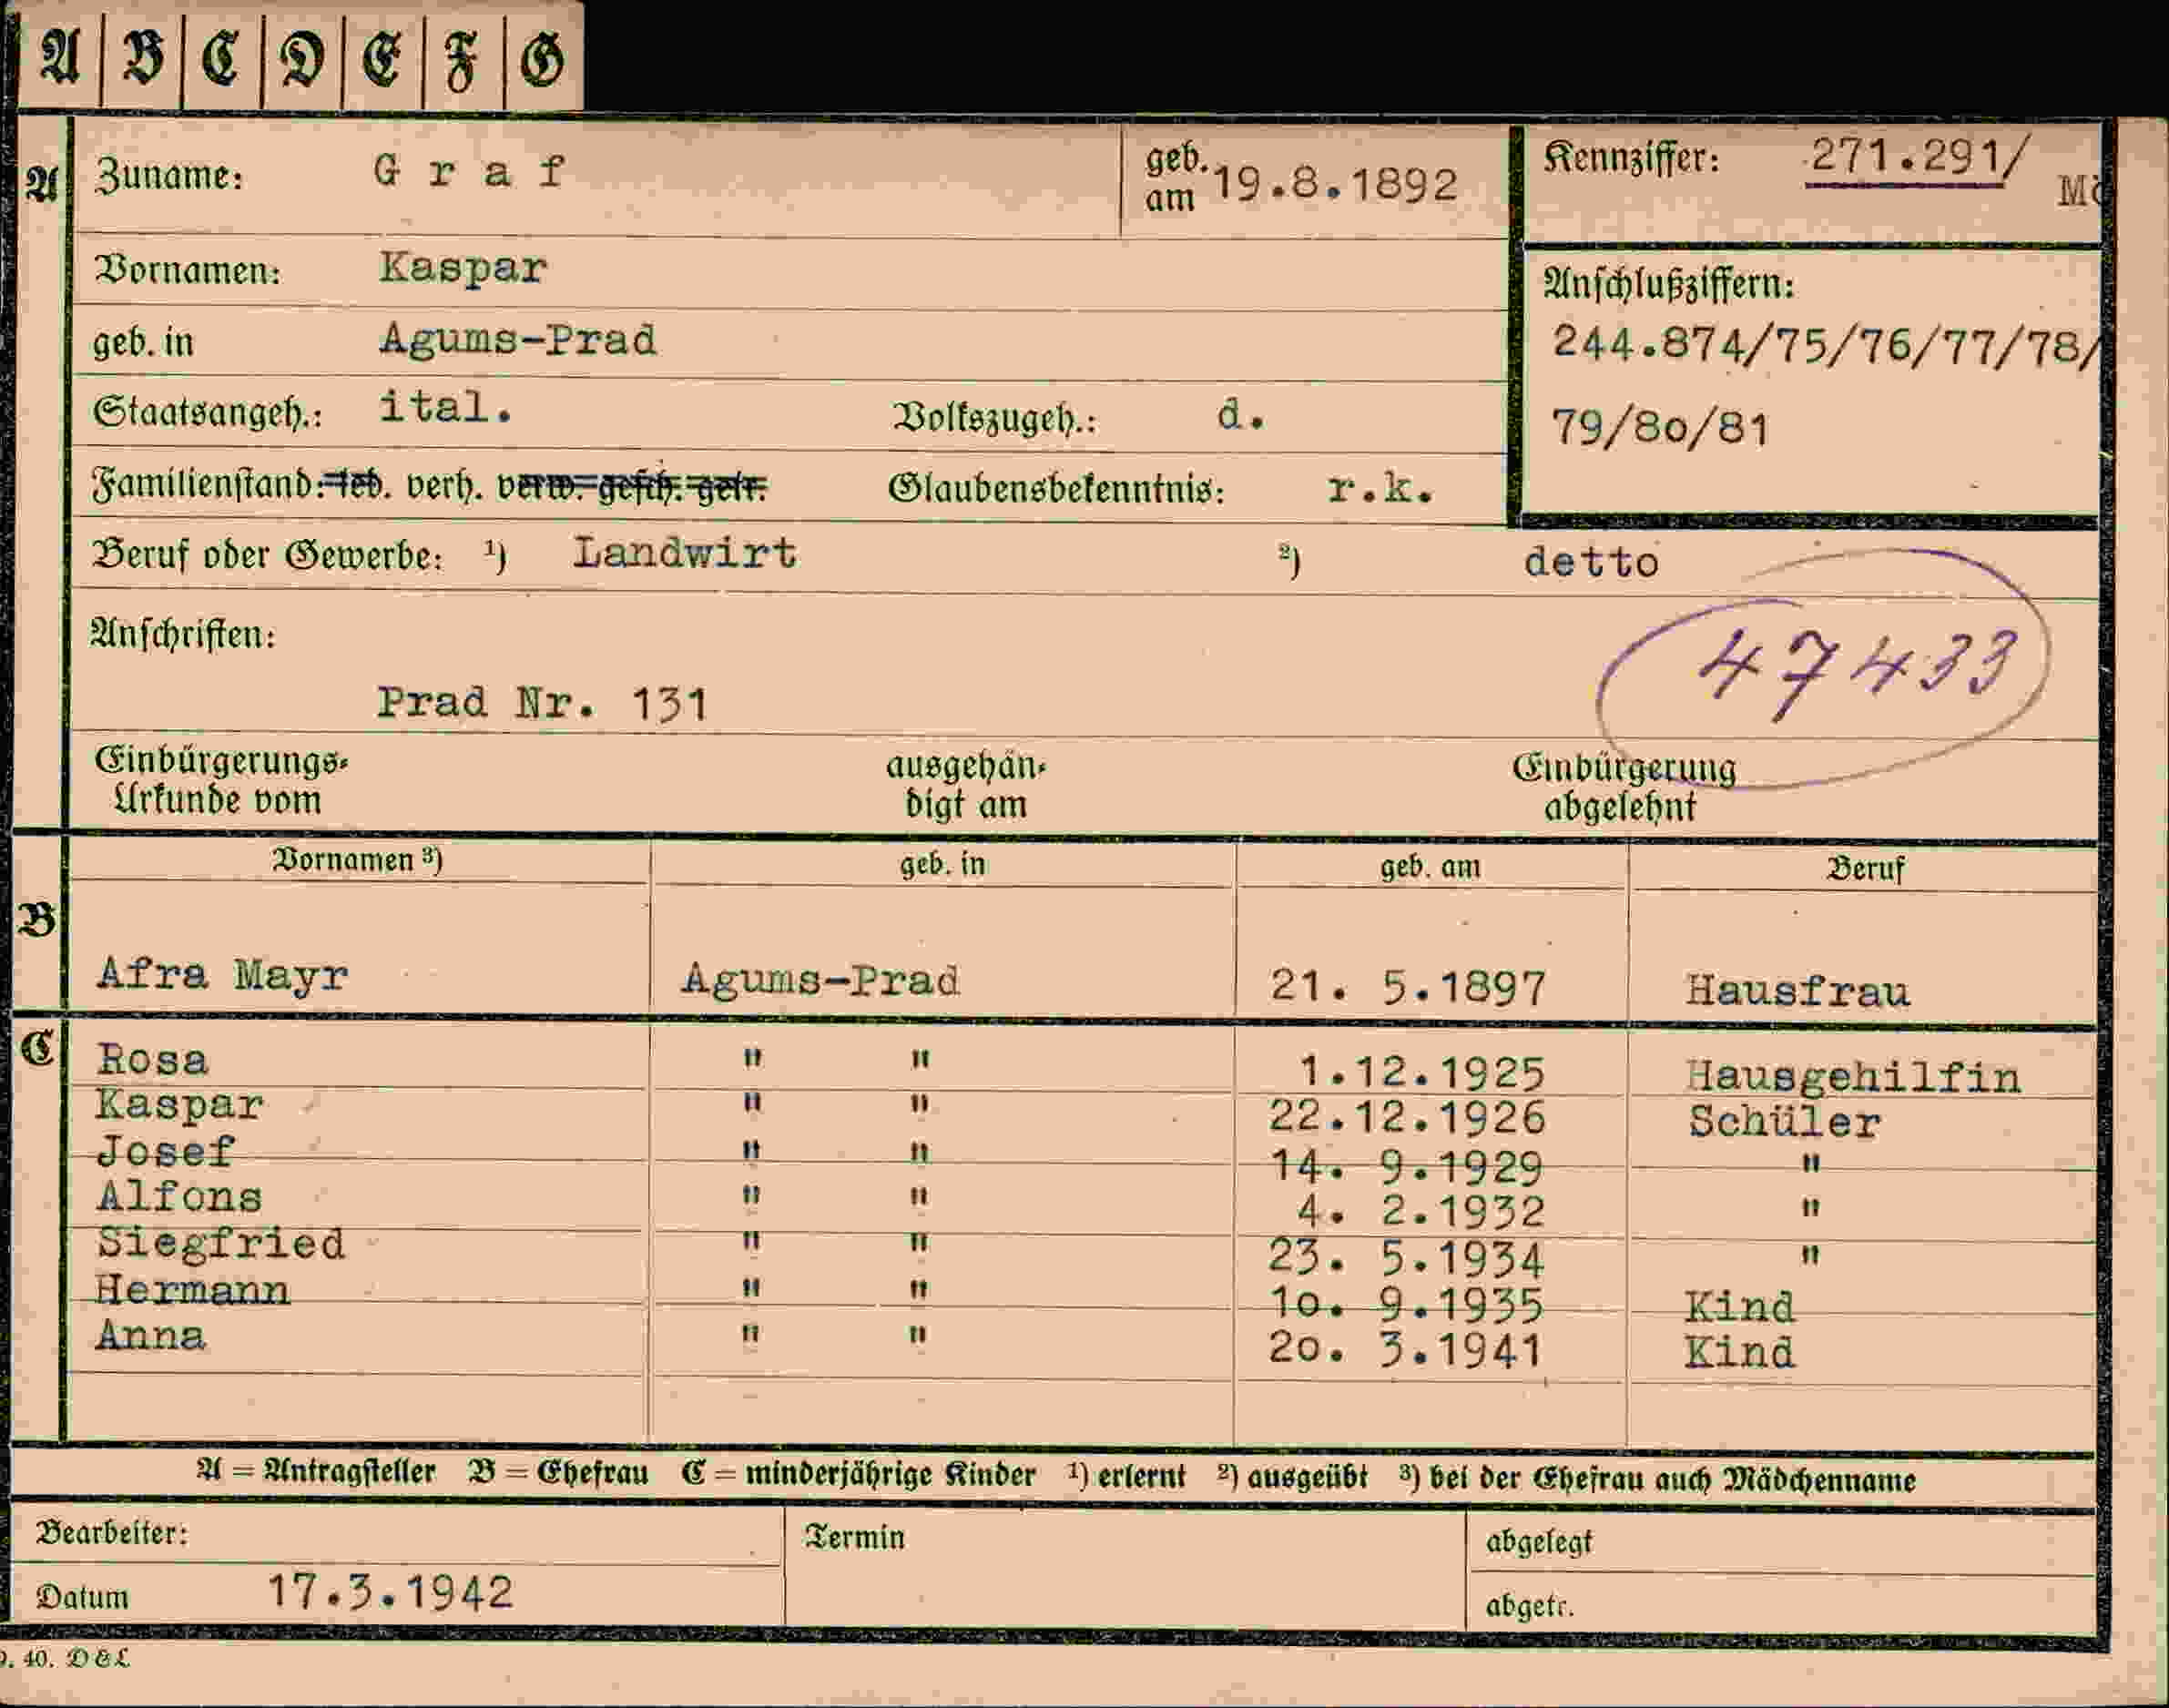 A B C D E F G
A Zuname: G r a f geb. am 19.8.1892 Kennziffer: 271.291/ Mö
Vornamen: Kaspar
Anschlußziffern:
geb. in Agums-Prad 244.874/75/76/77/78/
Staatsangeh.: ital. Volkszugeh.: d. 79/80/81
Familienstand: led. verh. verw. gesch. getr. Glaubensbekenntnis: r.k.
Beruf oder Gewerbe: ¹) Landwirt ²) detto
Anschriften: 47433
Prad Nr. 131
Einbürgerungs- ausgehän- Einbürgerung
Urkunde vom digt am abgelehnt
Vornamen ³) geb. in geb. am Beruf
B
Afra Mayr Agums-Prad 21. 5.1897 Hausfrau
C Rosa " " 1.12.1925 Hausgehilfin
Kaspar " " 22.12.1926 Schüler
Josef " " 14. 9.1929 "
Alfons " " 4. 2.1932 "
Siegfried " " 23. 5.1934 "
Hermann " " 10. 9.1935 Kind
Anna " " 20. 3.1941 Kind
A = Antragsteller B = Ehefrau C = minderjährige Kinder ¹) erlernt ²) ausgeübt ³) bei der Ehefrau auch Mädchenname
Bearbeiter: Termin abgelegt
Datum 17.3.1942 abgetr.
. 40. D & L